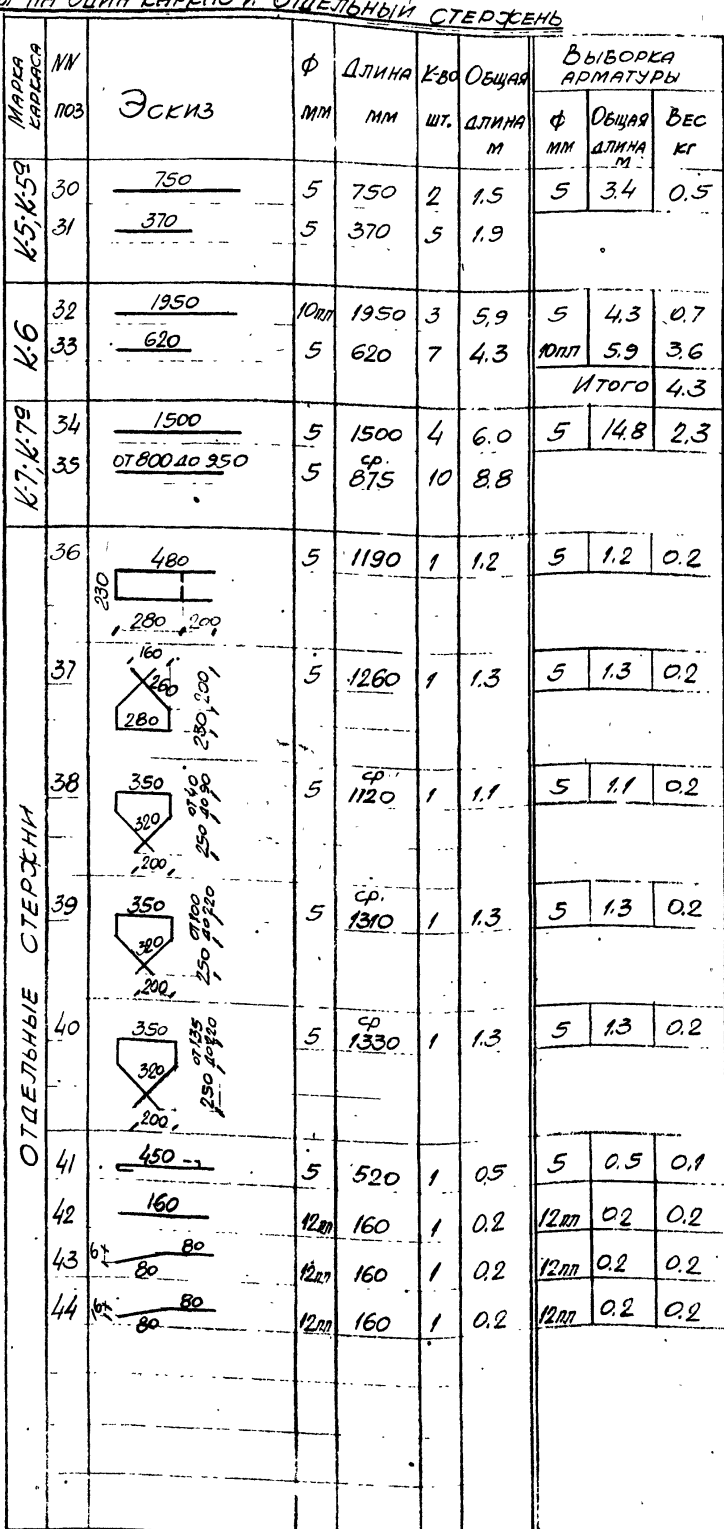 НА ОДИН КАРКАС И ОТДЕЛЬНЫЙ СТЕРЖЕНЬ
МАРКА КАРКАСА NN ПОЗ ЭСКИЗ ф ММ ДЛИНА ММ К-ВО ШТ. ОБЩАЯ ДЛИНА М ВЫБОРКА АРМАТУРЫ
ф ММ ОБЩАЯ ДЛИНА М ВЕС КГ
К-5; К-5а
30 750 5 750 2 1.5 5 3.4 0.5
31 370 5 370 5 1.9
К-6
32 1950 10пл 1950 3 5,9 5 4,3 0.7
33 620 5 620 7 4.3 10пл 5.9 3.6
ИТОГО 4.3
К-7; К-7а
34 1500 5 1500 4 6.0 5 14.8 2,3
35 ОТ 800 ДО 950 5 ср. 875 10 8.8
ОТДЕЛЬНЫЕ СТЕРЖНИ
36 480 230 280 200 5 1190 1 1.2 5 1.2 0.2
37 160 260 280 230 200 5 1260 1 1.3 5 1.3 0.2
38 350 320 200 250 ОТ 40 ДО 90 5 ср. 1120 1 1.1 5 1.1 0.2
39 350 320 200 250 ОТ 100 ДО 220 5 ср. 1310 1 1.3 5 1.3 0.2
40 350 320 200 250 ОТ 135 ДО 220 5 ср 1330 1 1.3 5 1.3 0.2
41 450 5 520 1 0,5 5 0.5 0.1
42 160 12пл 160 1 0.2 12пл 0.2 0.2
43 6 80 80 12пл 160 1 0.2 12пл 0.2 0.2
44 16 80 80 12пл 160 1 0.2 12пл 0.2 0.2